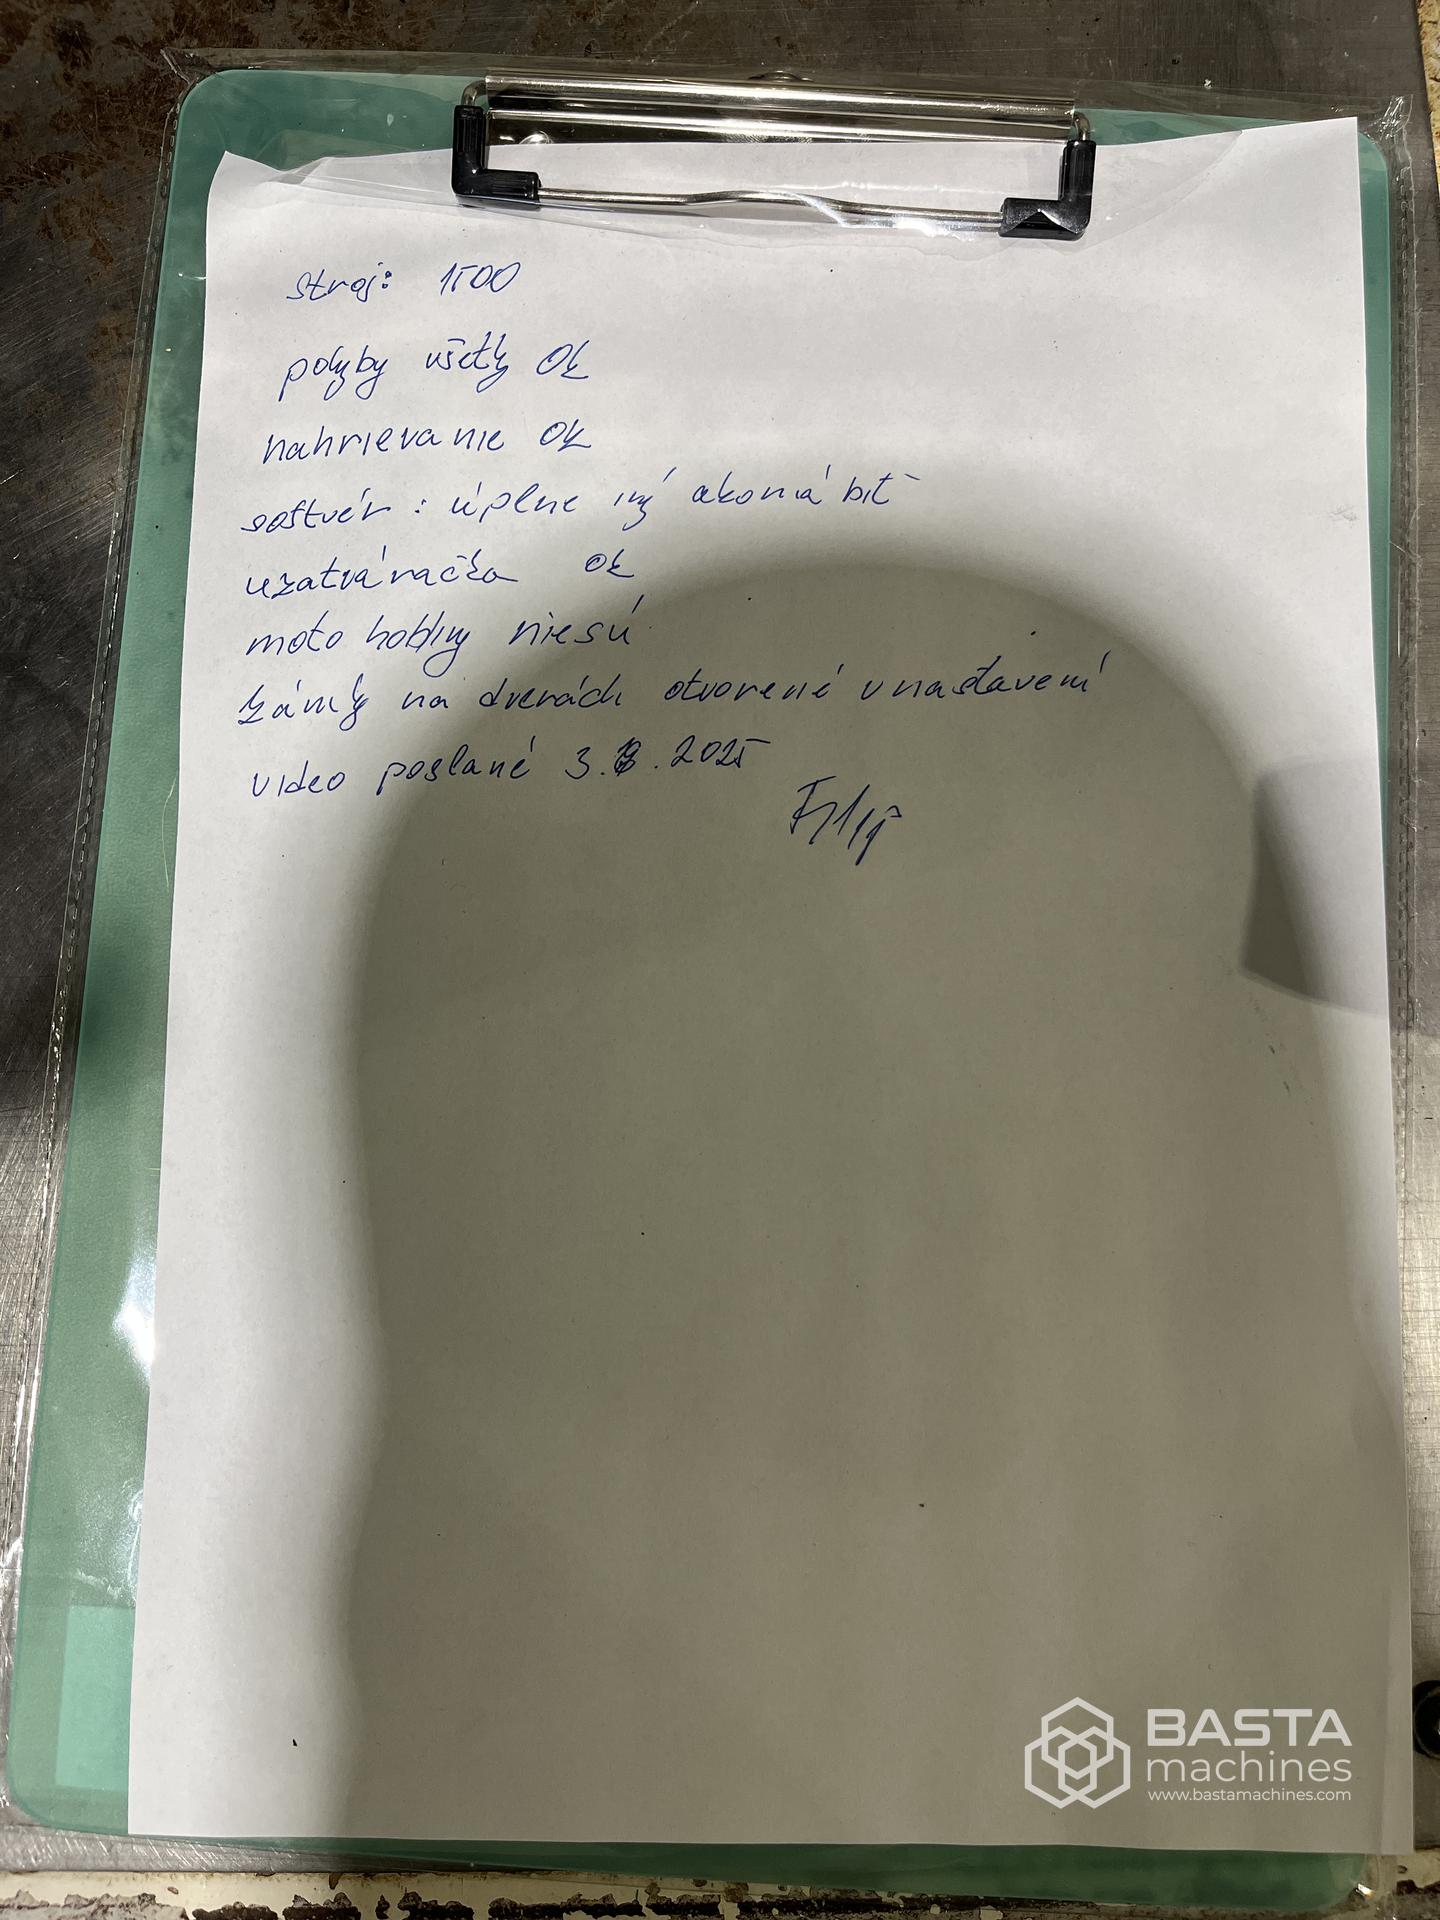 stroj: 1500
pohyby všetky OK
nahrievanie OK
softvér: úplne iný ako má biť
uzatváračka OK
moto hodiny niesú
zámky na dverách otvorené v nastavení
video poslané 3.8.2025
Filip
BASTA
machines
www.bastamachines.com